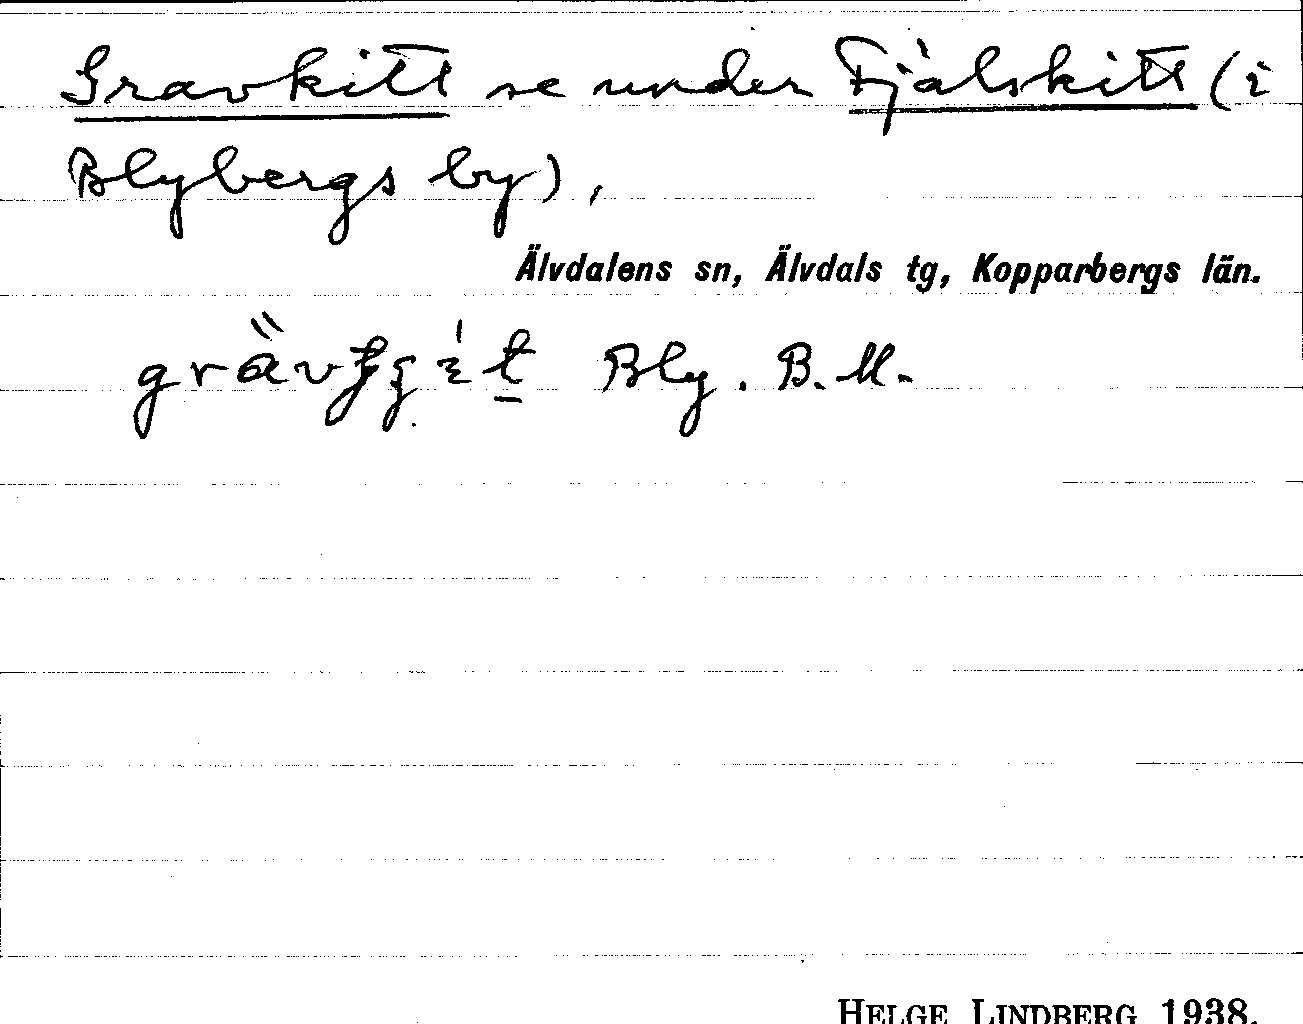 Gravkitt se under Fjälskitt (i
Blybergs by),
Älvdalens sn, Älvdals tg, Kopparbergs län.
Bly. B. M.
HELGE LINDBERG 1938.